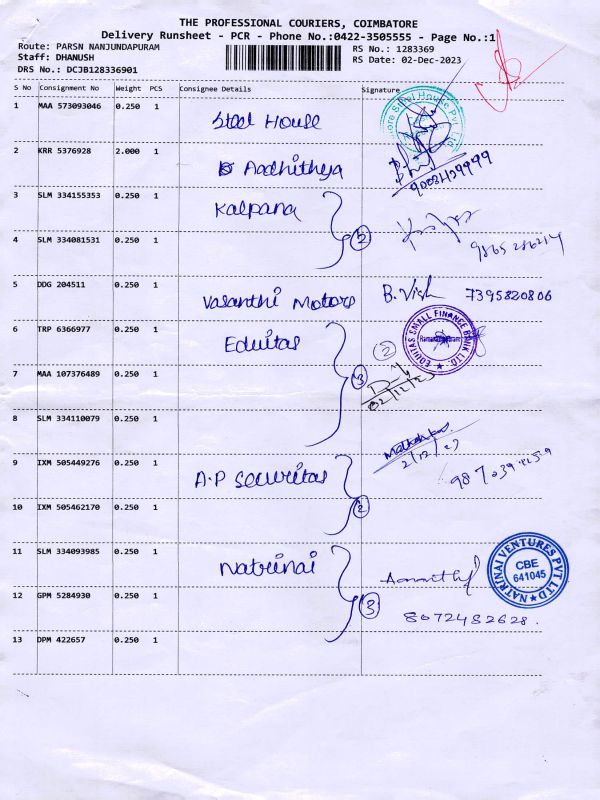 THE PROFESSIONAL COURIERS, COIMBATORE
Delivery Runsheet - PCR - Phone No.:0422-3505555 - Page No.:1
Route: PARSN NANJUNDAPURAM
RS No.: 1283369
Staff: DHANUSH
RS Date: 02-Dec-2023
DRS No.: DCJB128336901
S No Consignment No Weight PCS Consignee Details Signature
1 MAA 573093046 0.250 1 Steel House
2 KRR 5376928 2.000 1 Aadhithya
9003429999
3 SLM 334155353 0.250 1 Kalpana
4 SLM 334081531 0.250 1 2
5 DDG 204511 0.250 1 Vasanthi Motors B. Vish 7395820806
6 TRP 6366977 0.250 1 Eduitas 2
EQUITAS SMALL FINANCE BANK LTD.
Ramanathapuram
7 MAA 107376489 0.250 1 3
02/12/23
8 SLM 334110079 0.250 1
2/12/23
9 IXM 505449276 0.250 1 A.P Securitas
10 IXM 505462170 0.250 1 2
11 SLM 334093985 0.250 1 Natrinai
NATRINAI VENTURES PVT LTD
CBE
641045
12 GPM 5284930 0.250 1 3 8072482628.
13 DPM 422657 0.250 1